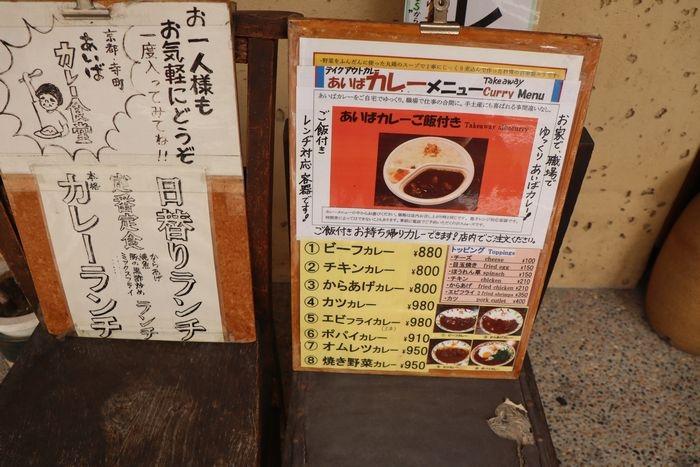 お一人様も
お気軽にどうぞ
一度入ってみてね!!
京都・寺町
あいば
カレー食堂
日替りランチ
からあげ
焼魚
ミックスフライ
ランチ
定番定食
本格
カレーランチ
テイクアウトカレー
あいばカレーメニュー
Takeaway
Curry Menu
あいばカレーをご自宅でゆっくり。職場で仕事の合間に。手土産にも喜ばれる事間違いなし。
あいばカレーご飯付き
お家で、職場で
ゆっくりあいばカレー!
ご飯付き
レンチ対応容器です!
ご飯付きお持ち帰りカレーできます!店内でご注文ください。
① ビーフカレー ¥880
② チキンカレー ¥800
③ からあげカレー ¥800
④ カツカレー ¥980
⑤ エビフライカレー ¥980
⑥ ポパイカレー ¥910
⑦ オムレツカレー ¥950
⑧ 焼き野菜カレー ¥950
トッピング Toppings
・チーズ cheese ¥100
・目玉焼き fried egg ¥150
・ほうれん草 spinach ¥150
・チキン chicken ¥210
・からあげ fried chicken ¥210
・エビフライ 2 fried shrimps ¥350
・カツ pork cutlet ¥400